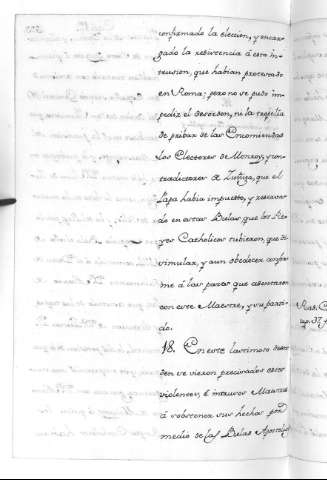 confirmado la eleccion, y encar-
gado la resistencia á esta in-
trusion, que habian procurado
en Roma; pero no se pudo im-
pedir el desorden, ni la
de privar de las Encomiendas
los Electores de Monroy, y con-
tradictores de Zuñiga, que el
Papa habia impuesto, y
do en otras Bulas, que los Re-
yes Catholicos tubieron, que di-
simular, y aun obedecer confor-
me á las paces que asentaron
con este Maestre, y su parti-
do.
18. En este lastimoso desor-
den se vieron precisados estos
violentos, é intrusos Maestres
á sostener sus hechos por
medio de las Bulas Apostolicas